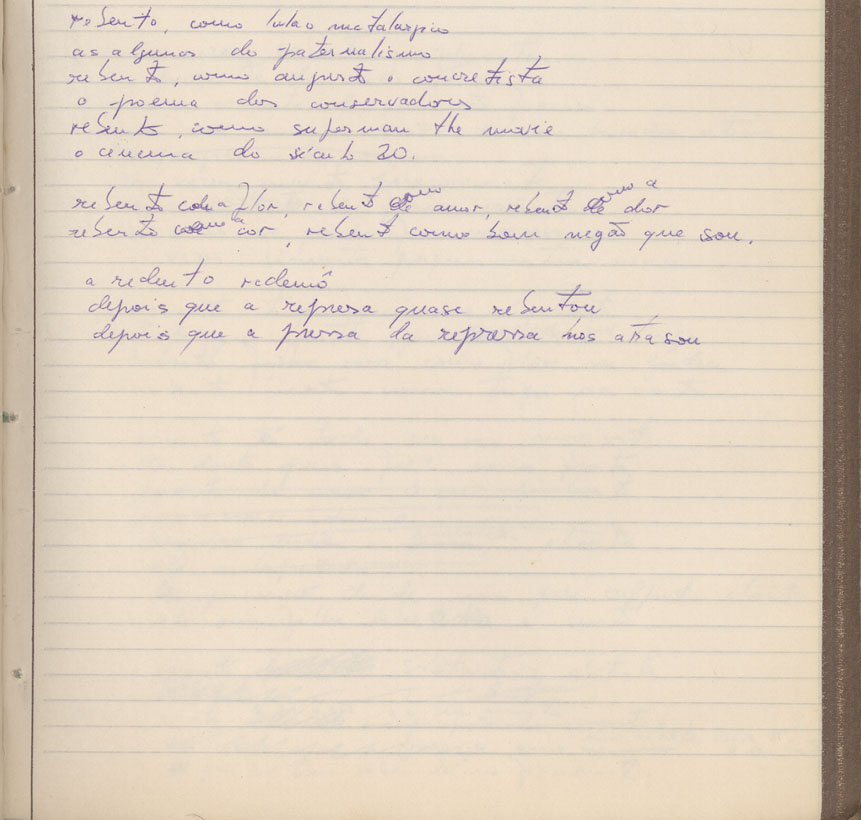 rebento, como lula o metalúrgico
as algemas do paternalismo
rebento, como augusto o concretista
o poema dos conservadores
rebento, como superman the movie
o cinema do século 20.
rebento como a flor, rebento como amor, rebento como a dor
rebento como a cor, rebento como bom negão que sou.
a redento redemô
depois que a represa quase rebentou
depois que a pressa da repressa nos atrasou